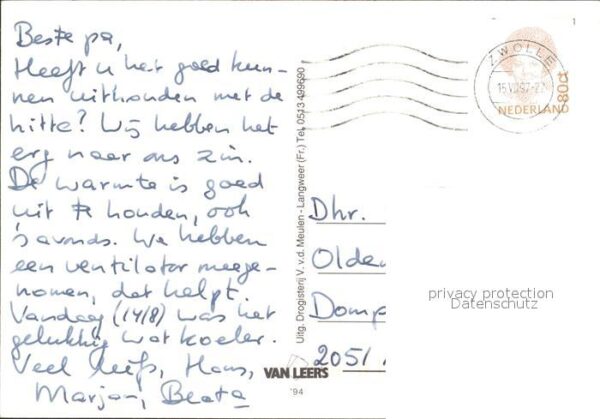 Beste pa,
Heeft u het goed kun-
nen uithouden met de
hitte? Wij hebben het
erg naar ons zin.
De warmte is goed
uit te houden, ook
's avonds. We hebben
een ventilator meege-
nomen, dat helpt.
Vandaag (14/8) was het
gelukkig wat koeler.
Veel liefs, Hans,
Marjan, Beata
Uitg. Drogisterij V. v.d. Meulen - Langweer (Fr.) Tel. 0513-499690
VAN LEERS
'94
1
ZWOLLE
NEDERLAND
80ct
Dhr.
Olden
Domp
2051
privacy protection
Datenschutz